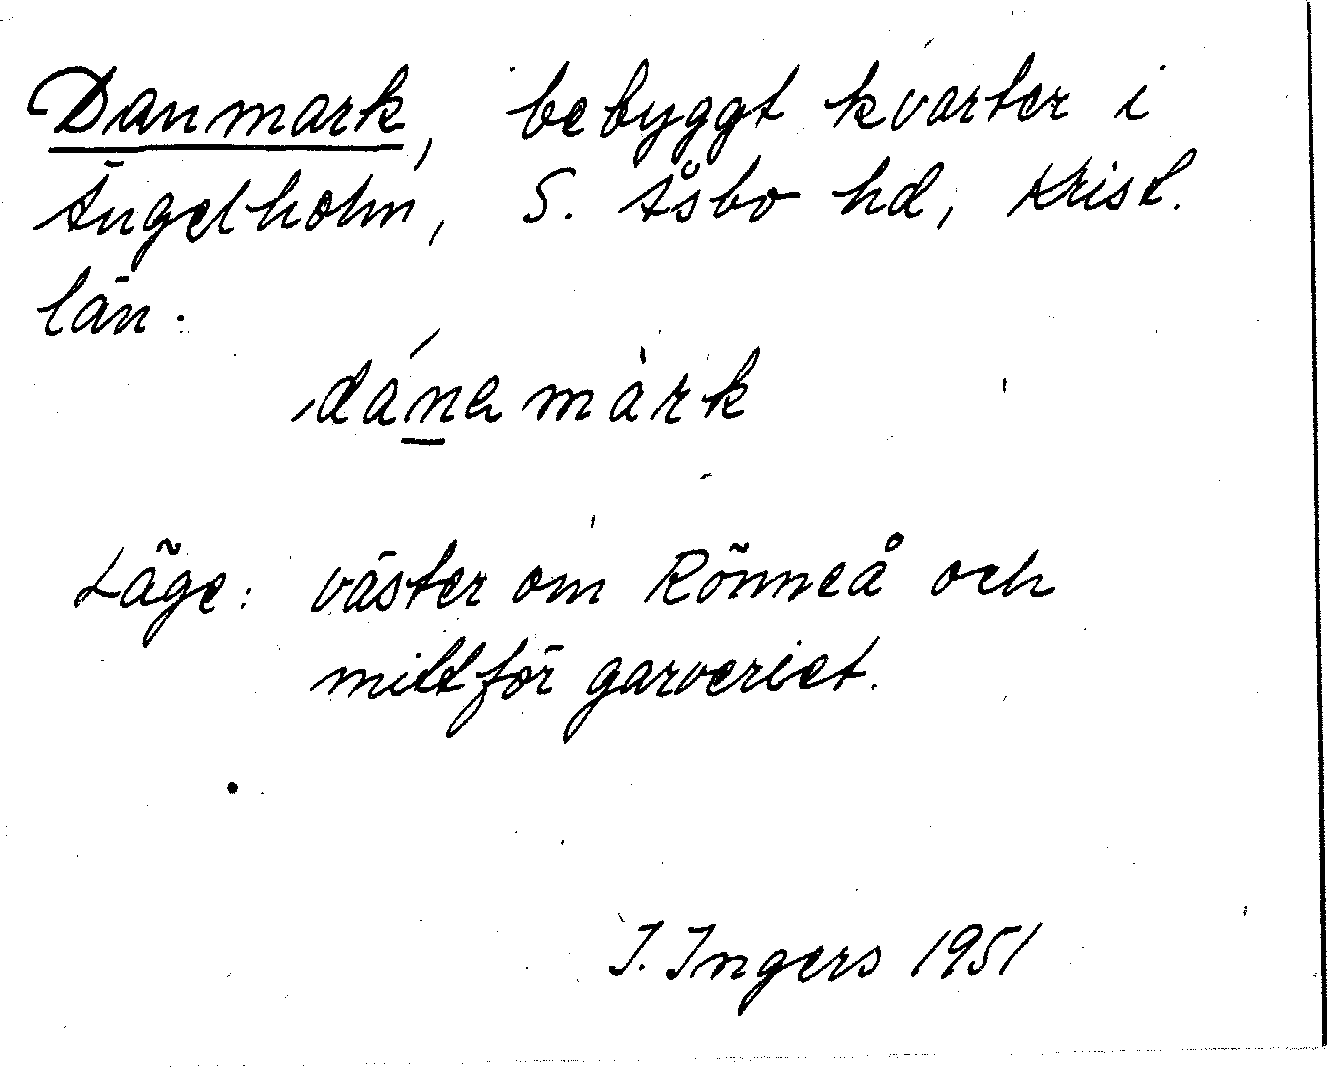 Danmark, bebyggt kvarter i
Ängelholm, S. Åsbo hd, Krist.
län.
dánamàrk
Läge: väster om Rönneå och
mittför garveriet.
I. Ingers 1951